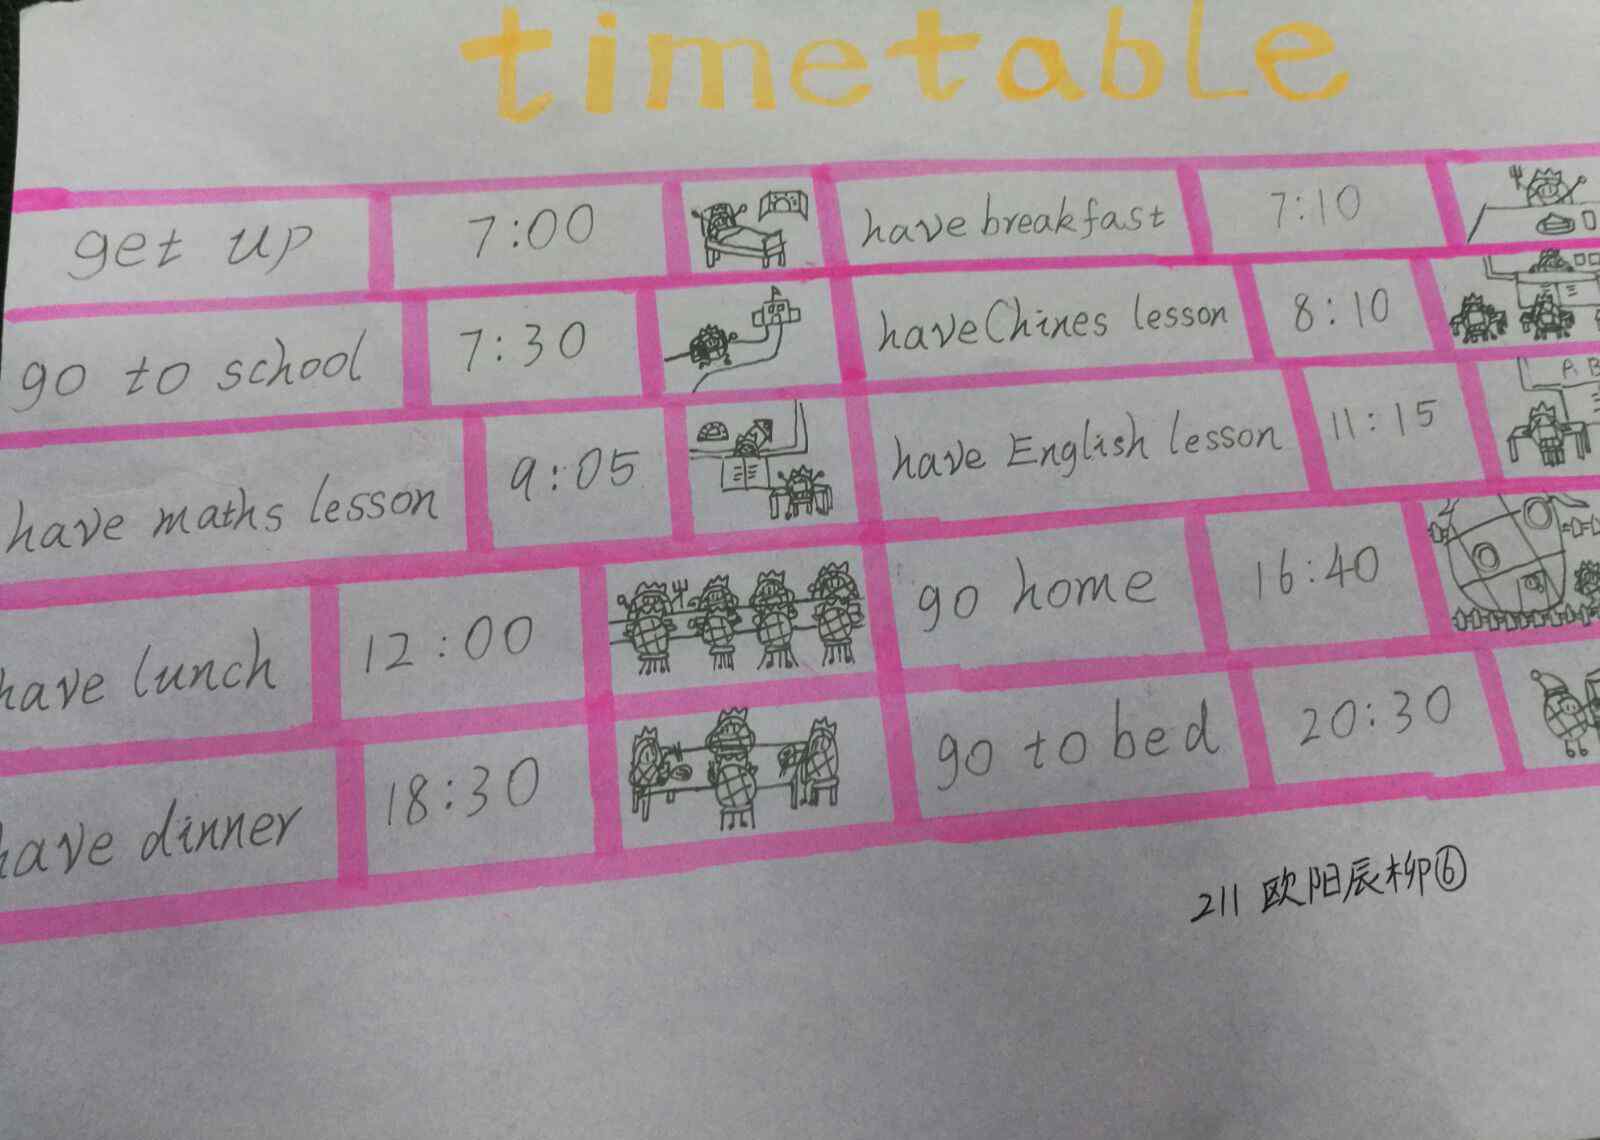 timetable
get up 7:00 have breakfast 7:10
go to school 7:30 have Chines lesson 8:10
have maths lesson 9:05 have English lesson 11:15
A B
have lunch 12:00 go home 16:40
have dinner 18:30 go to bed 20:30
211 欧阳辰柳⑥